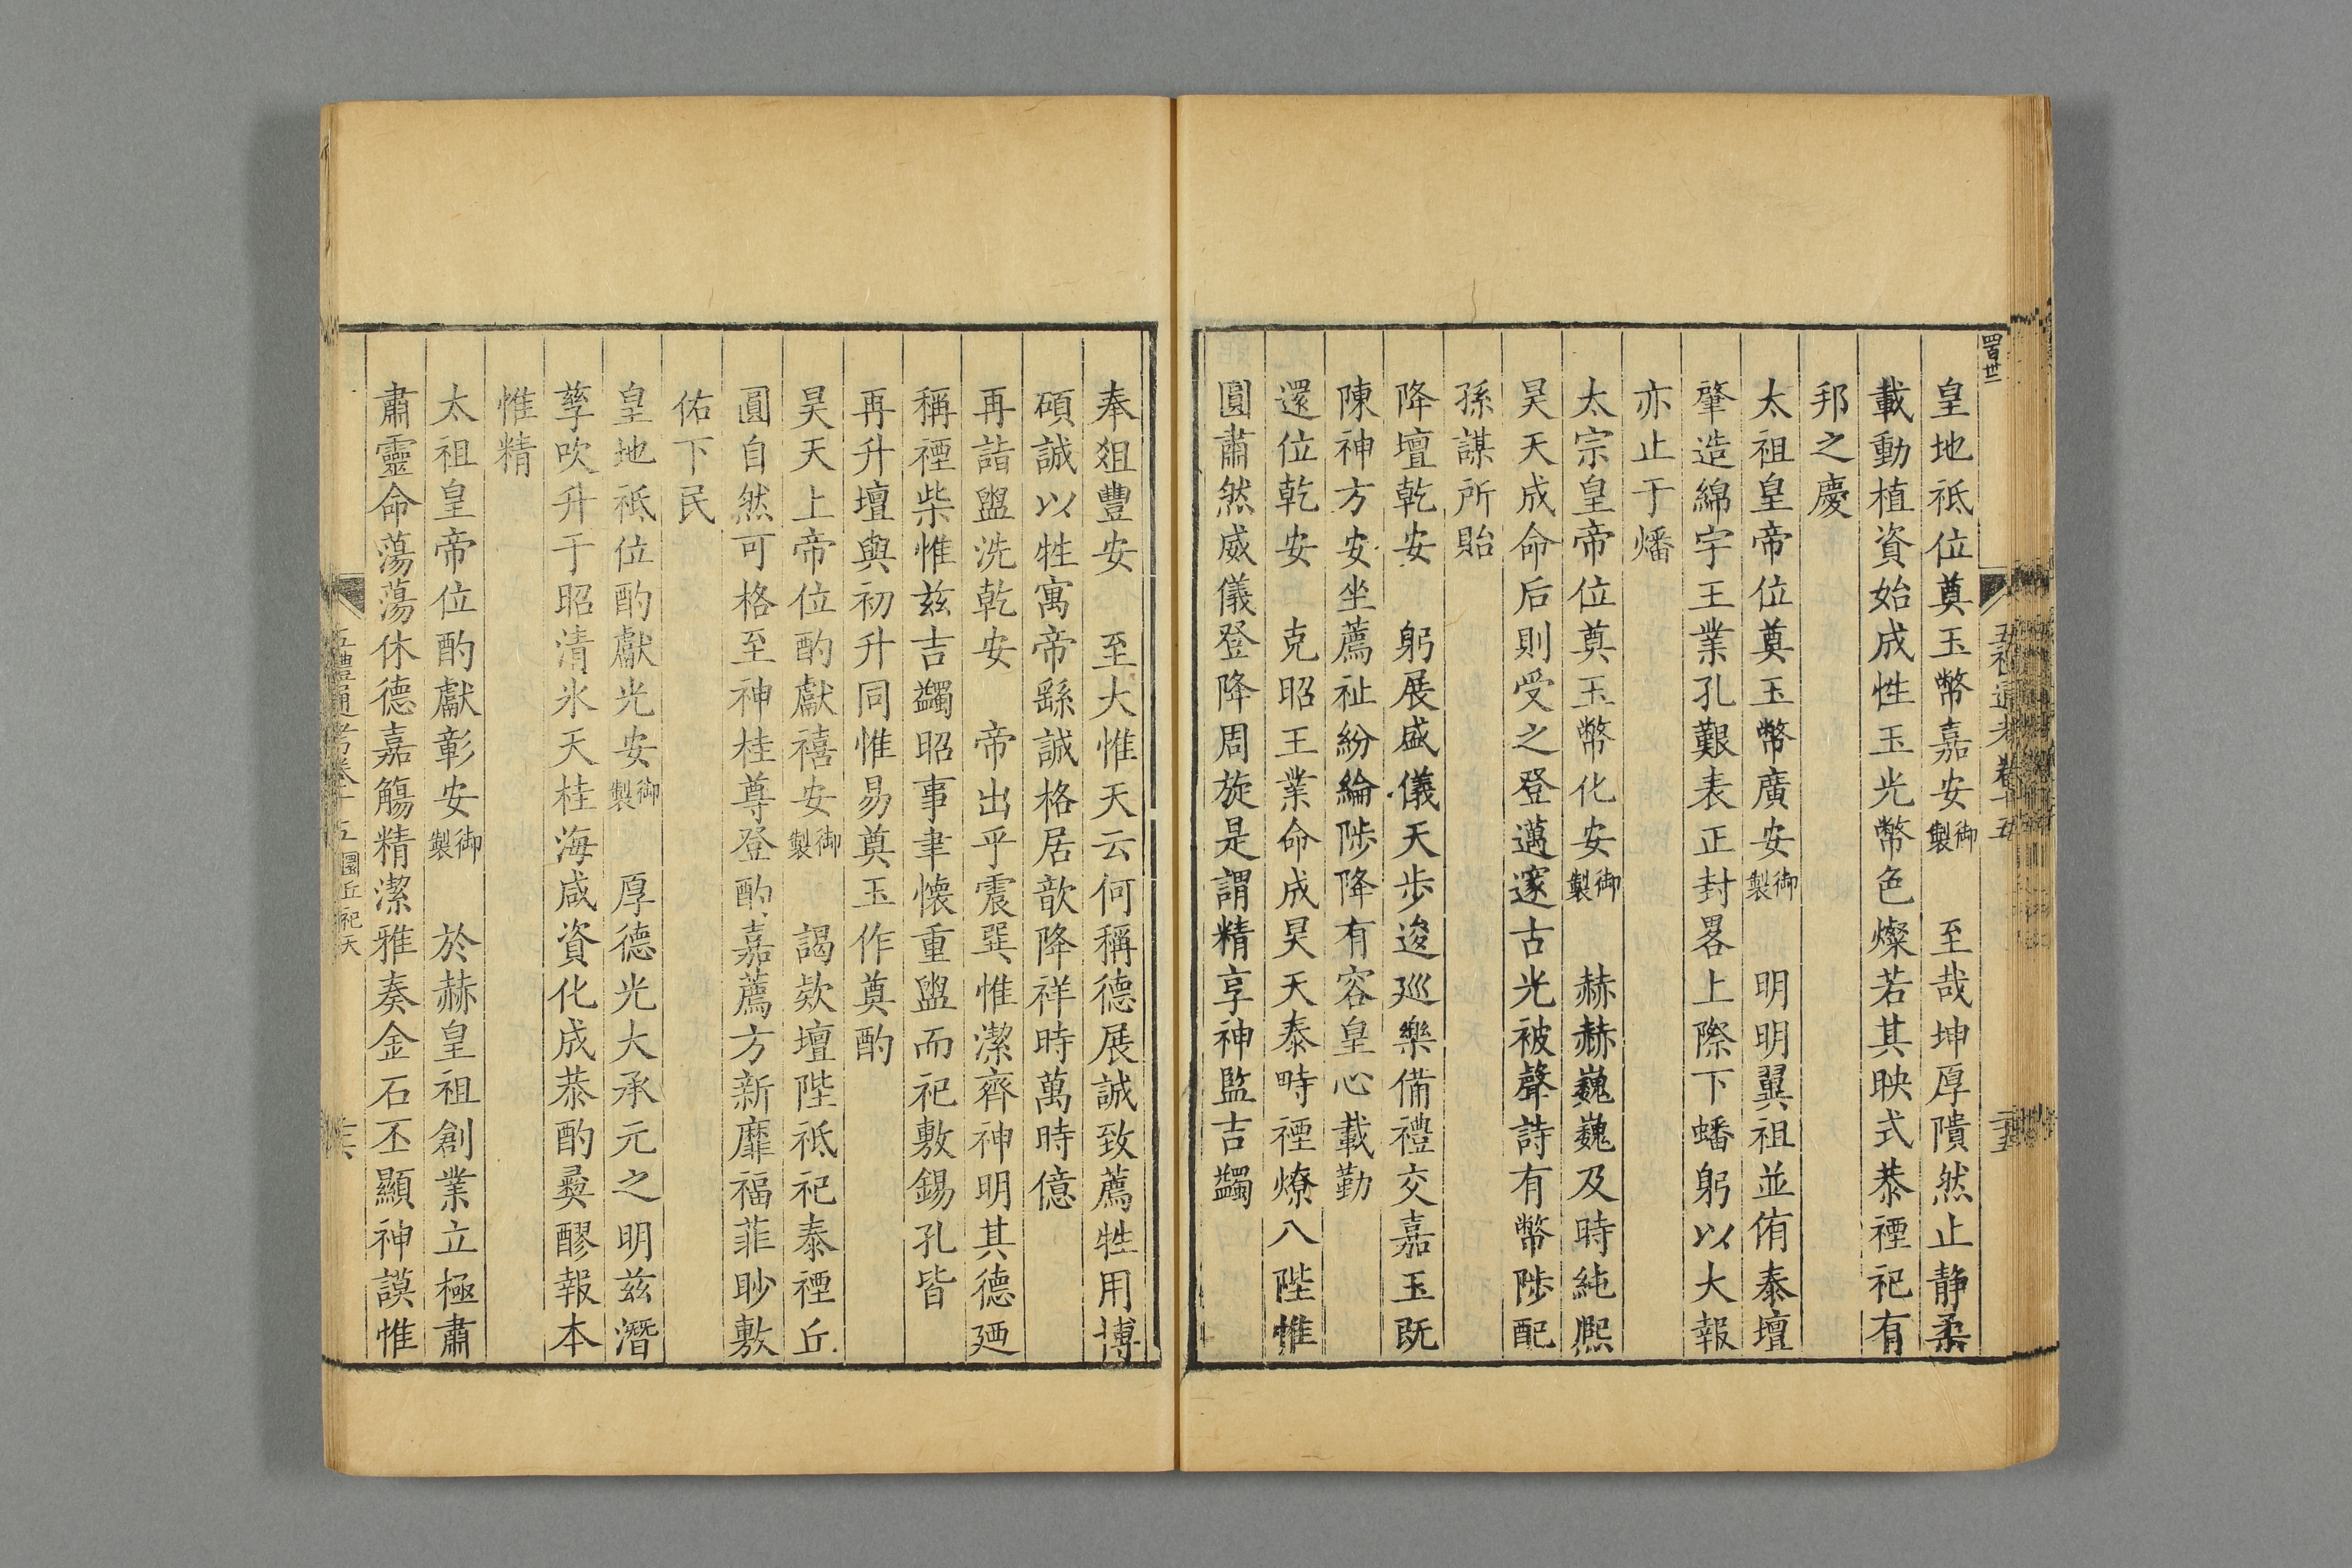 皇地祗位奠玉幣嘉安御製　至哉坤厚隤然止静柔
載動植資始成性玉光幣色燦若其映式恭禋祀有
邦之慶
太祖皇帝位奠玉幣廣安御製　明明翼祖並侑泰壇
肇造綿宇王業孔艱表正封畧上際下蟠躬以大報
亦止于燔
太宗皇帝位奠玉幣化安御製　赫赫巍巍及時純熈
昊天成命后則受之登邁邃古光被聲詩有幣陟配
孫謀所貽
降壇乾安　躬展盛儀天步逡廵樂備禮交嘉玉既
陳神方安坐薦祉紛綸陟降有容皇心載勤
還位乾安　克昭王業命成昊天泰畤禋燎八陛惟
圓肅然威儀登降周旋是謂精享神監吉蠲
奉俎豐安　至大惟天云何稱德展誠致薦牲用博
碩誠以牲寓帝繇誠格居歆降祥時萬時億
再詣盥洗乾安　帝出乎震巽惟潔齊神明其德廼
稱禋柴惟兹吉蠲昭事聿懷重盥而祀敷錫孔皆
再升壇與初升同惟易奠玉作奠酌
昊天上帝位酌獻禧安御製　謁欵壇陛祗祀泰禋丘
圓自然可格至神桂尊登酌嘉薦方新靡福菲眇敷
佑下民
皇地祗位酌獻光安御製　厚德光大承元之明兹潛
孳吹升于昭清氷天桂海咸資化成恭酌彛醪報本
惟精
太祖皇帝位酌獻彰安御製　於赫皇祖創業立極肅
肅靈命蕩蕩休德嘉觴精潔雅奏金石丕顯神謨惟
五禮通考卷十五 圜丘祀天